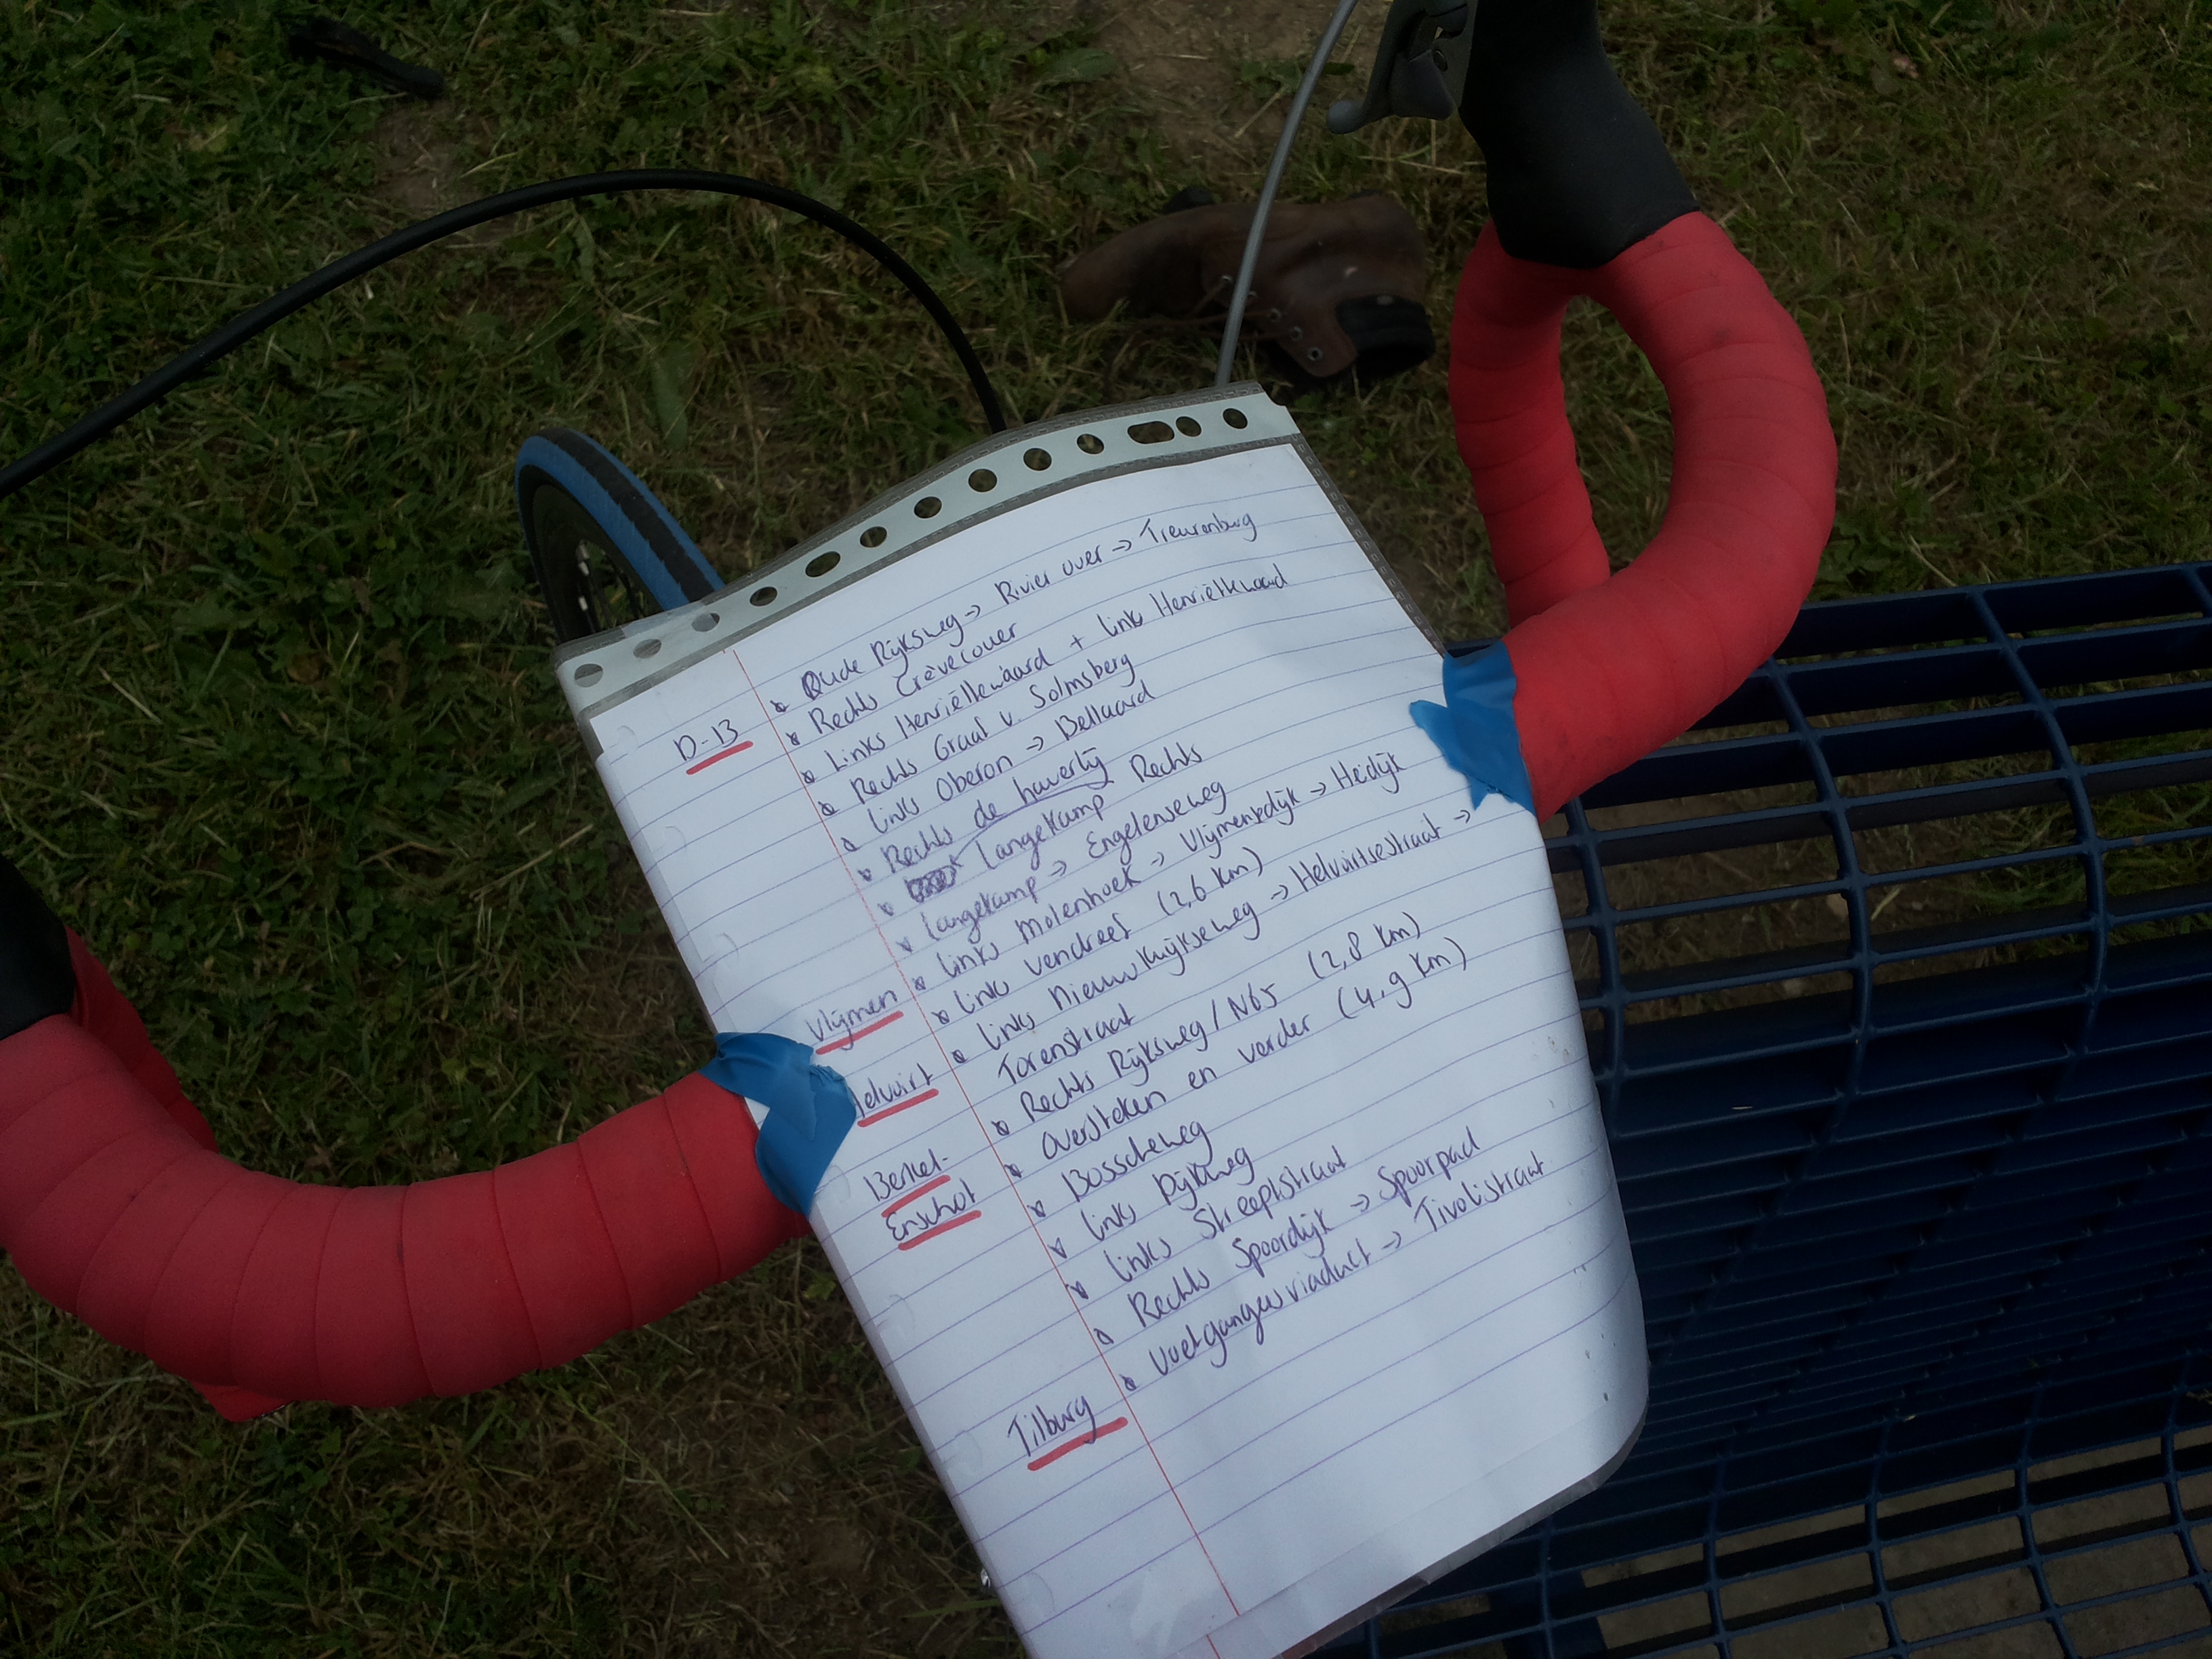 Oude Rijksweg -> Rivier over -> Treurenburg
Rechts Crèvecouer
D-13 Links Henriëttewaard + links Henriëttewaard
Rechts Graaf v. Solmsberg
Links Oberon -> Bellaard
Rechts de haverlij
Langekamp Rechts
Langekamp -> Engelenseweg
Links Molenhoek -> Vlijmensedijk -> Heidijk
Vlijmen Links Vendreef (2,6 km)
Links Nieuwkuijkseweg -> Helvoirtsestraat ->
Torenstraat
Helvoirt Rechts Rijksweg/N65 (2,8 km)
Oversteken en verder (4,9 km)
Berkel-
Enschot Bosscheweg
Links Rijksweg
Links Streepstraat
Rechts Spoordijk -> Spoorpad
Voetgangersviaduct -> Tivolistraat
Tilburg